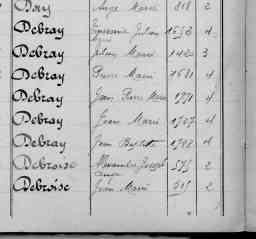 Day Ange Marie 818 2
Debray Julien 4
Debray Julien Marie 3
Debray Pierre Marie 1681 4
Debray Jean Pierre Marie 1771 4
Debray Jean Marie 1747 4
Debray Jean Baptiste 1748 4
Debroise Alexandre Joseph 575 2
Debroise Jean Marie 2